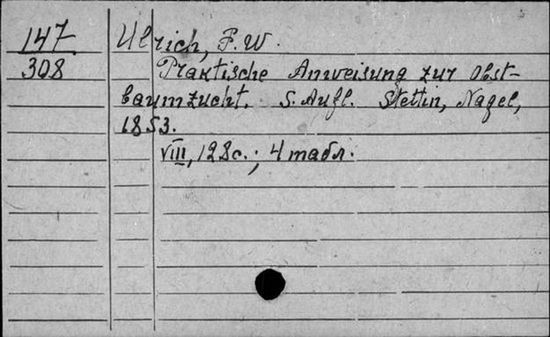 147
308
Ulrich, F. W.
Praktische Anweisung zur Obst-
baumzucht. 5. Aufl. Stettin, Nagel,
1853.
VIII, 128 с.; 4 табл.